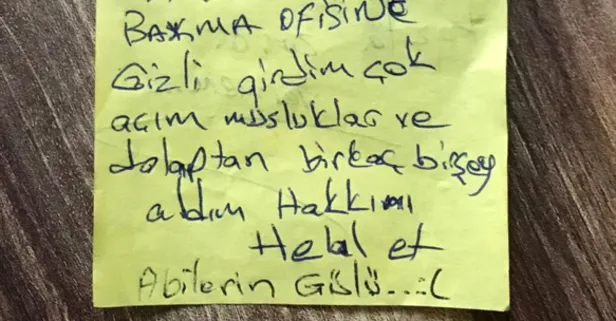 BAKMA OFİSİNE
Gizli girdim çok
açım musluklar ve
dolaptan birkaç birşey
aldım Hakkını
Helal et
Abilerin Gülü...:(